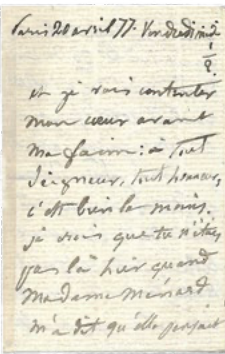 Paris 20 avril 77. Vendredi midi
1/2.
je vais contenter
mon cœur avant
ma faim: à tout
Seigneur, tout honneur,
c'est bien le moins.
je crois que tu n'étais
pas là hier quand
Madame Ménard
m'a dit qu'elle pensait